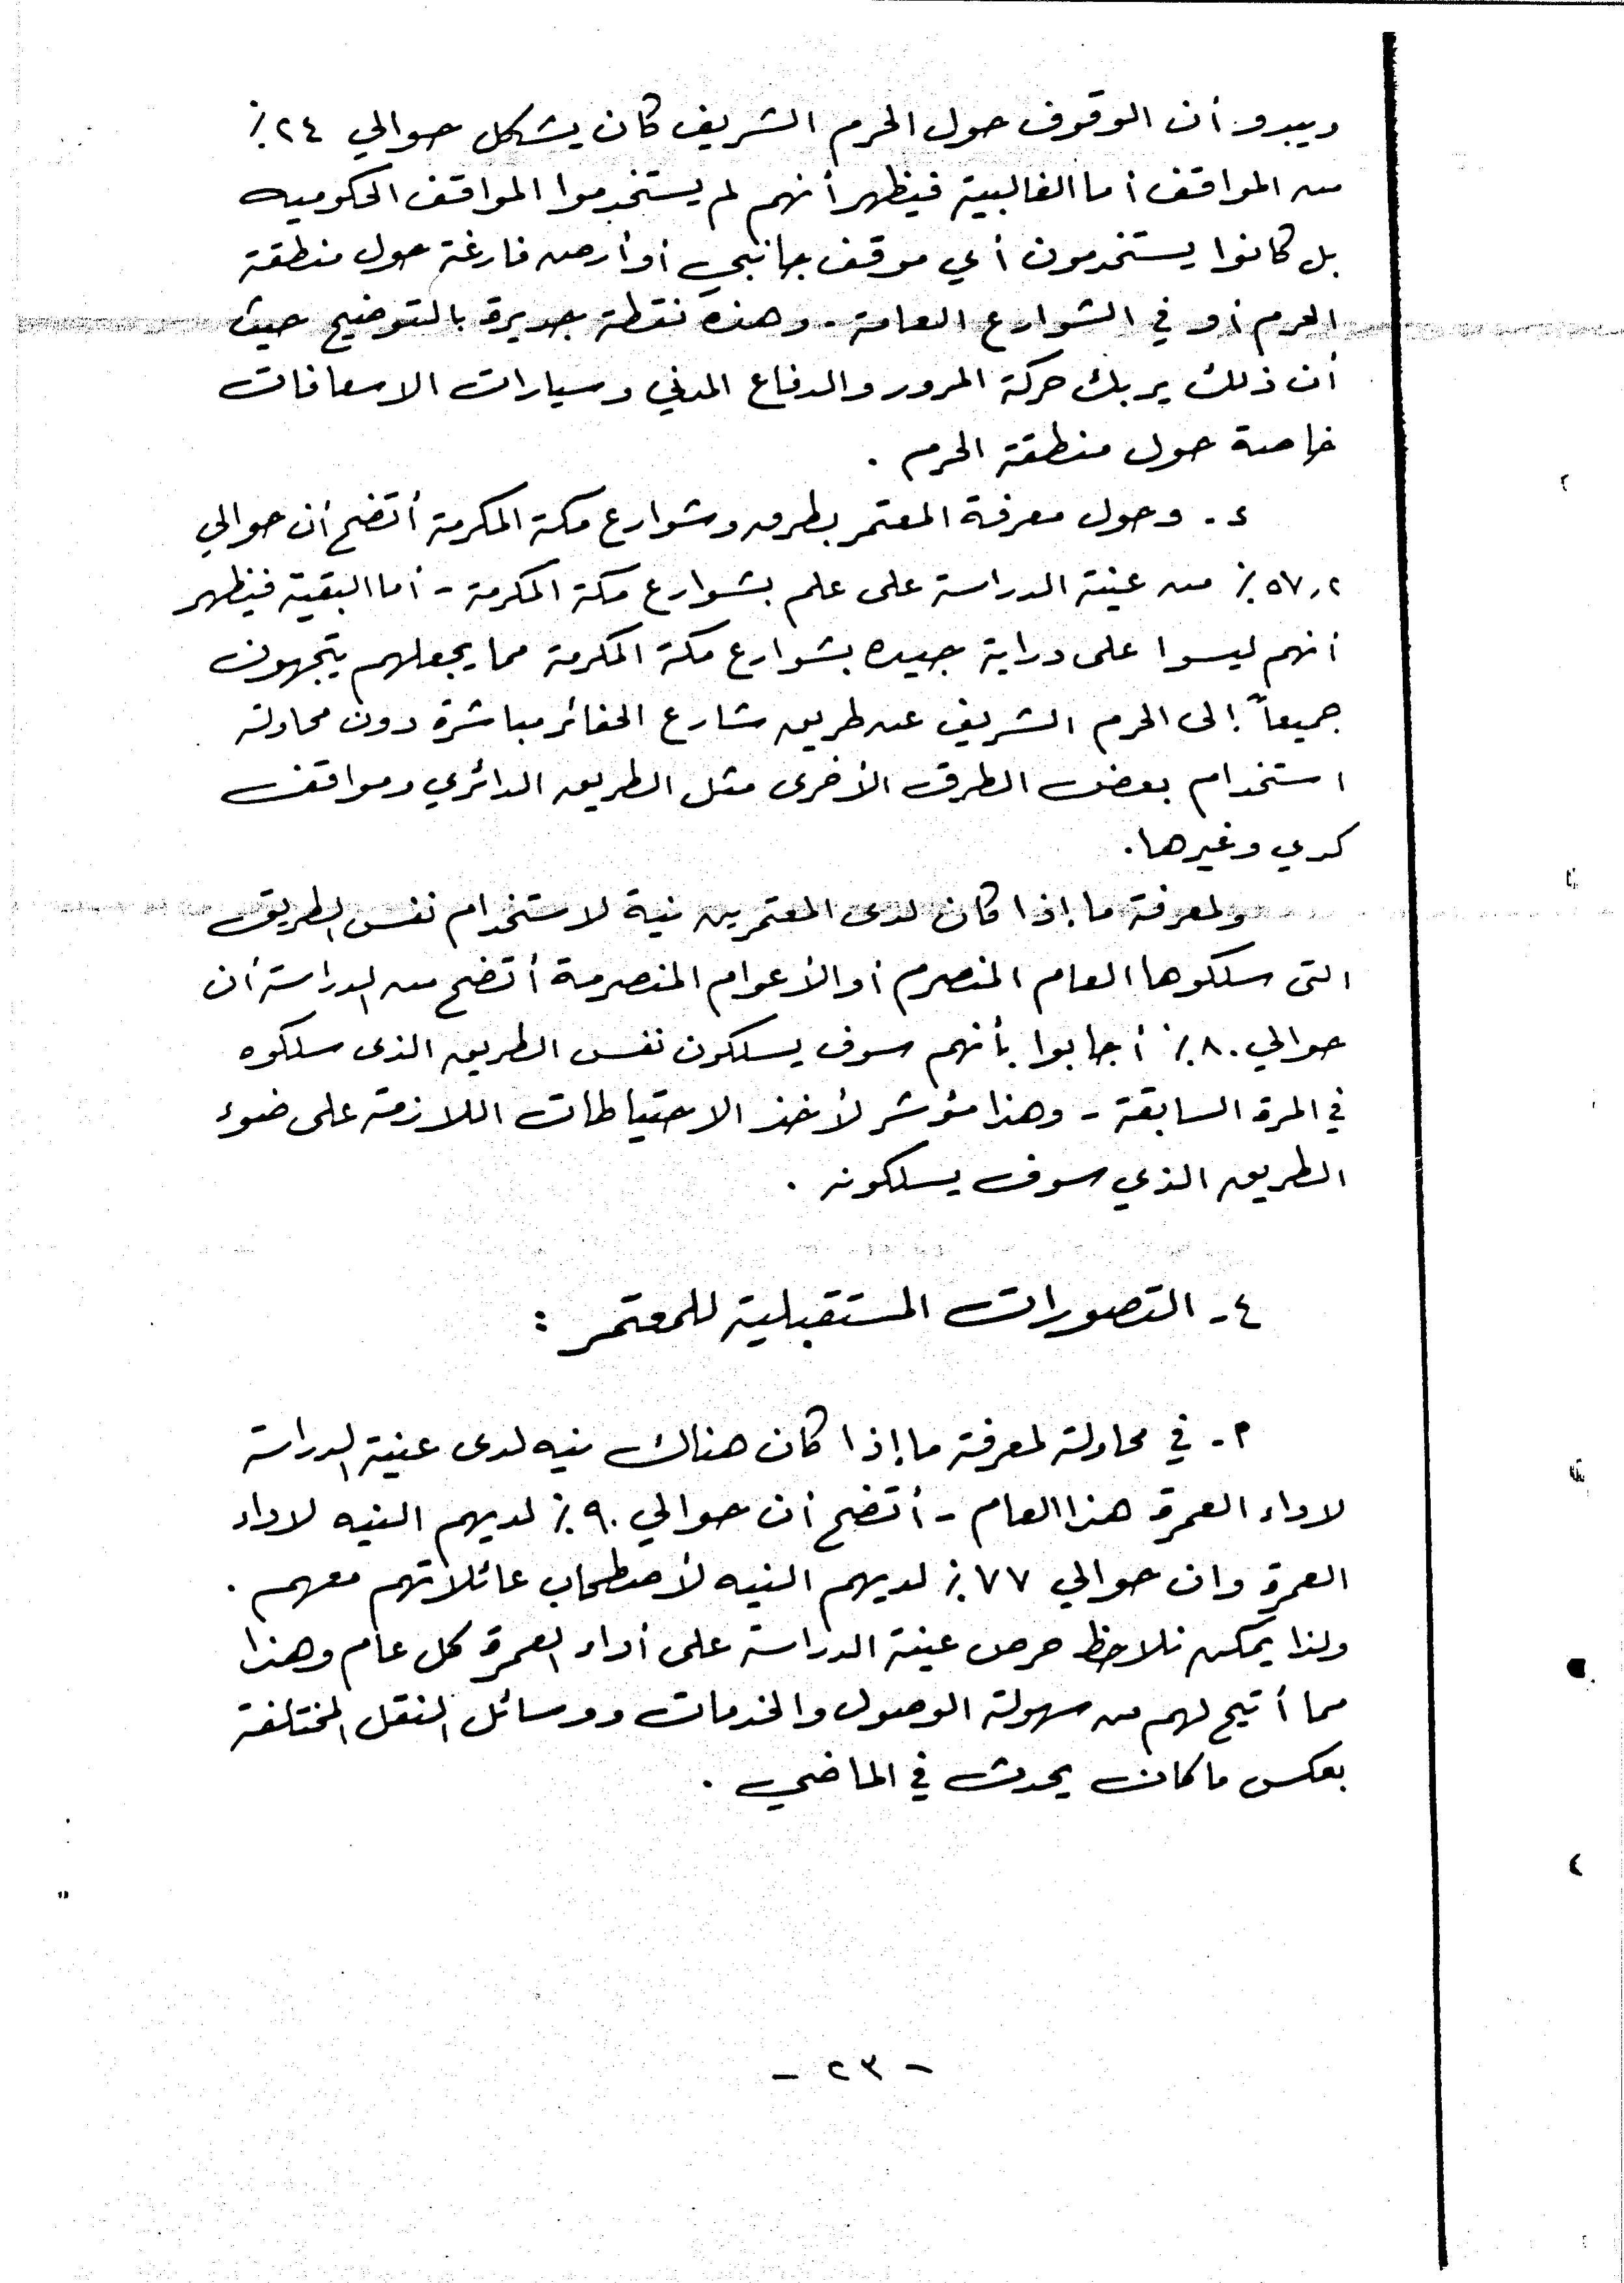 ويبدو أن الوقوف حول الحرم الشريف كان يشكل حوالي ٢٤٪
من المواقف أما الغالبية فيظهر أنهم لم يستخدموا المواقف الحكوميه
بل كانوا يستخدمون أي موقف جانبي أو أرض فارغة حول منطقة
الحرم أو في الشوارع العامة - وهذه نقطة جديرة بالتوضيح حيث
أن ذلك يربك حركة المرور والدفاع المدني وسيارات الاسعافات
خاصة حول منطقة الحرم .
٤ - وحول معرفة المعتمر بطرق وشوارع مكة المكرمة أتضح أن حوالي
٥٧,٢٪ من عينة الدراسة على علم بشوارع مكة المكرمة - أما البقية فيظهر
أنهم ليسوا على دراية جيده بشوارع مكة المكرمة مما يجعلهم يتجهون
جميعاً إلى الحرم الشريف عن طريق شارع الحفائر مباشرة دون محاولة
استخدام بعض الطرق الأخرى مثل الطريق الدائري ومواقف
كدي وغيرها .
ولمعرفة ما إذا كان لدى المعتمرين نية لاستخدام نفس الطريق
التى سلكوها العام المنصرم أو الأعوام المنصرمة أتضح من الدراسة أن
حوالي ٨٠٪ أجابوا بأنهم سوف يسلكون نفس الطريق الذى سلكوه
في المرة السابقة - وهذا مؤشر لأخذ الاحتياطات اللازمة على ضوء
الطريق الذي سوف يسلكونه .
٤ - التصورات المستقبلية للمعتمر :
٢ - في محاولة لمعرفة ما إذا كان هناك نيه لدى عينة الدراسة
لاداء العمرة هذا العام - أتضح أن حوالي ٩٠٪ لديهم النيه لاداء
العمرة وان حوالي ٧٧٪ لديهم النيه لأصطحاب عائلاتهم معهم .
ولذا يمكن نلاحظ حرص عينة الدراسة على أداء العمرة كل عام وهذا
مما أتيح لهم من سهولة الوصول والخدمات ووسائل النقل المختلفة
بعكس ما كان يحدث في الماضي .
- ٢٣ -